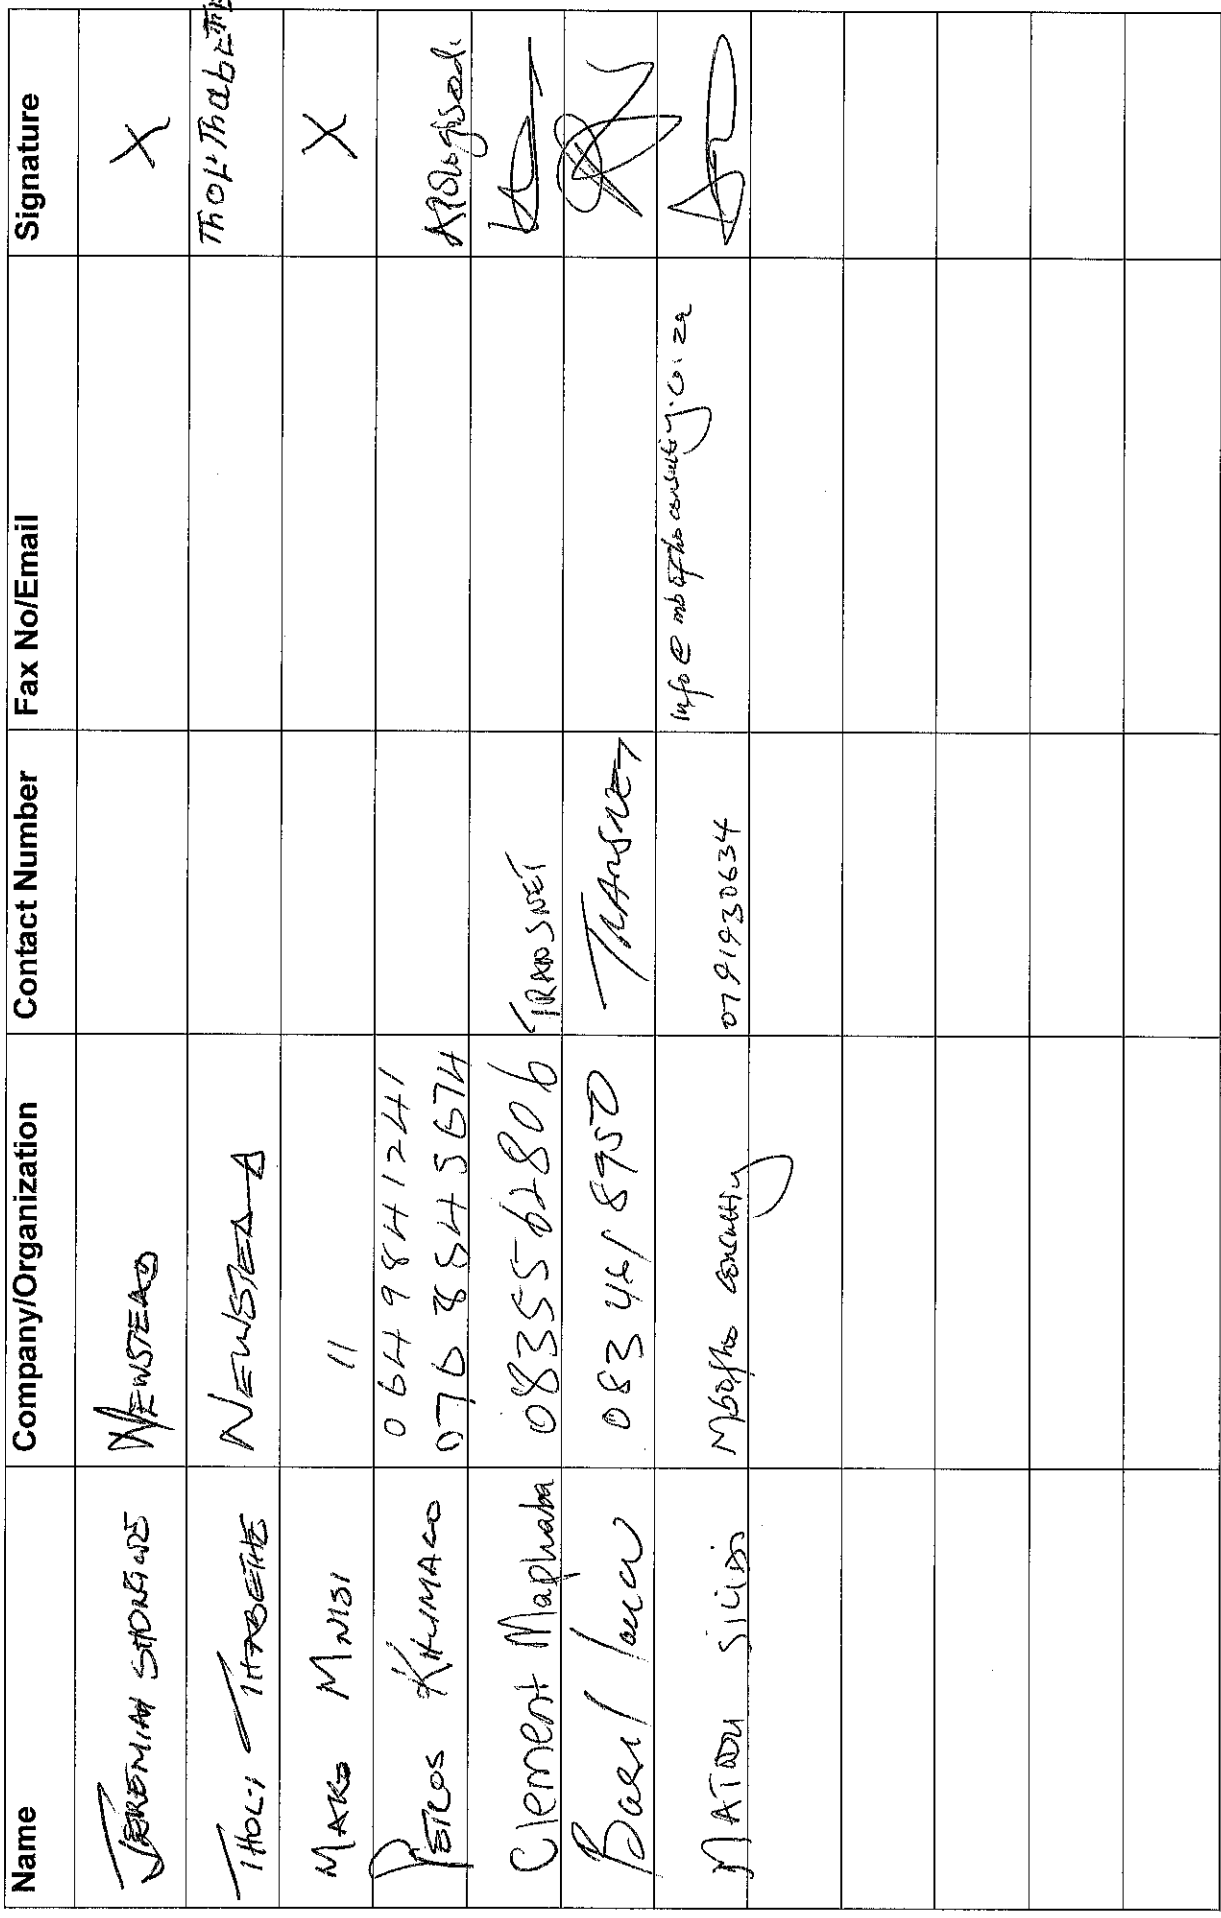 Name Company/Organization Contact Number Fax No/Email Signature
JEREMIAH NEWSTEAD X
THOLI THABETHE NEWSTEAD THOLI ThabETHE
MAKO MNISI 11 X
PETROS KHUMALO 0649841241 Apologised.
0768545674
Clement Maphaba 0835562806 TRANSNET
083 461 8950 TRANSNET
MATODU SILIDI consulting 0791930634